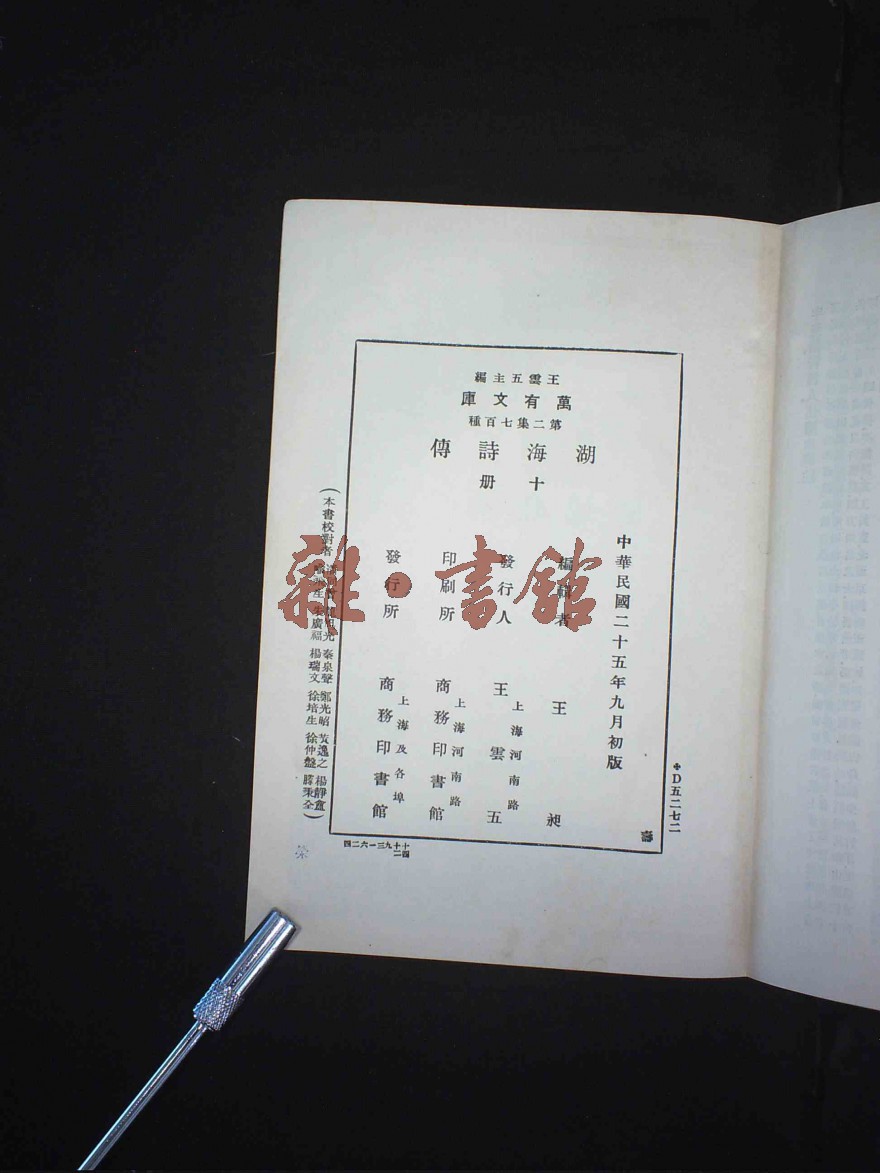 王雲五主編
萬有文庫
第二集七百種
湖海詩傳
十册
中華民國二十五年九月初版
編輯者 王昶
發行人 王雲五
上海河南路
印刷所 商務印書館
上海河南路
發行所 商務印書館
上海及各埠
(本書校對者
光 秦泉聲 鄭光昭 黃逸之 楊靜盦
生 朱廣福 楊瑞文 徐培生 徐仲盤 秉全)
D五二七二
壽
雜·書館